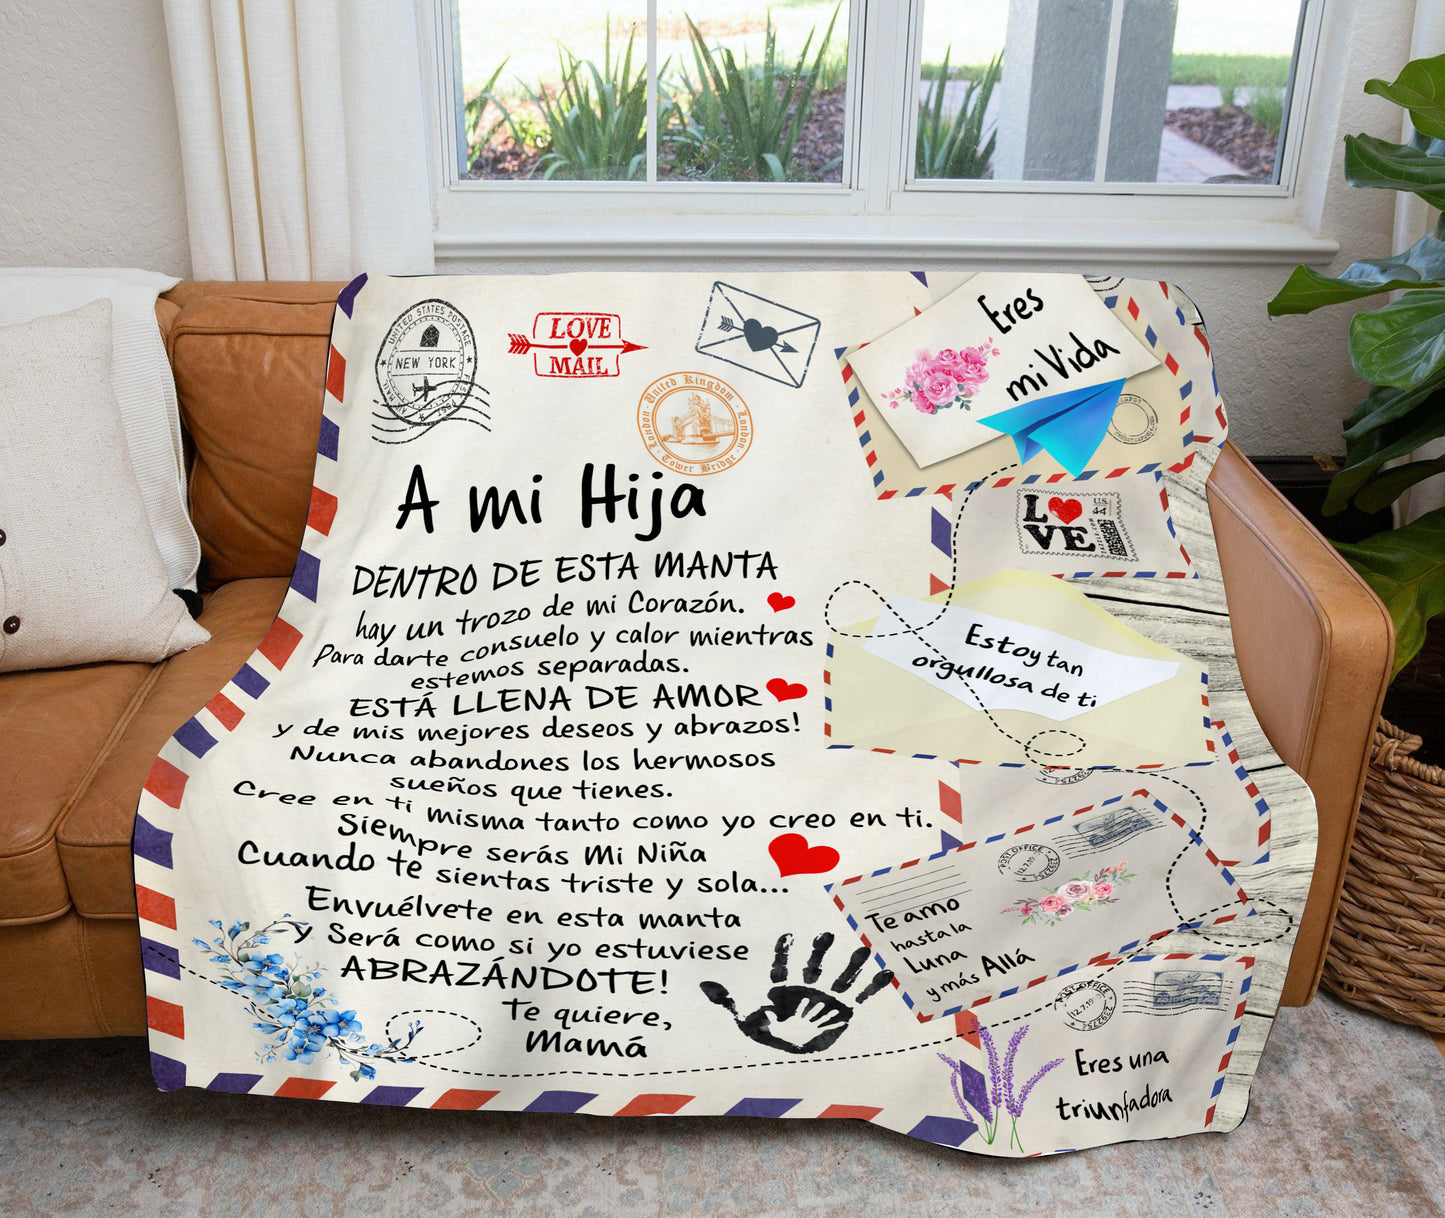 UNITED STATES POSTAGE
NEW YORK
AIR MAIL
LOVE
MAIL
United Kingdom
London
London
Tower Bridge
A mi Hija
DENTRO DE ESTA MANTA
hay un trozo de mi Corazón.
Para darte consuelo y calor mientras
estemos separadas.
ESTÁ LLENA DE AMOR
y de mis mejores deseos y abrazos!
Nunca abandones los hermosos
sueños que tienes.
Cree en ti misma tanto como yo creo en ti.
Siempre serás Mi Niña
Cuando te sientas triste y sola...
Envuélvete en esta manta
y Será como si yo estuviese
ABRAZÁNDOTE!
Te quiere,
Mamá
Eres
mi Vida
LOVE
U.S.
44
Estoy tan
orgullosa de ti
POST OFFICE
12.7.19
2392754
Te amo
hasta la
Luna
y más Allá
POST OFFICE
12.7.19
2392754
25
25
Eres una
triunfadora